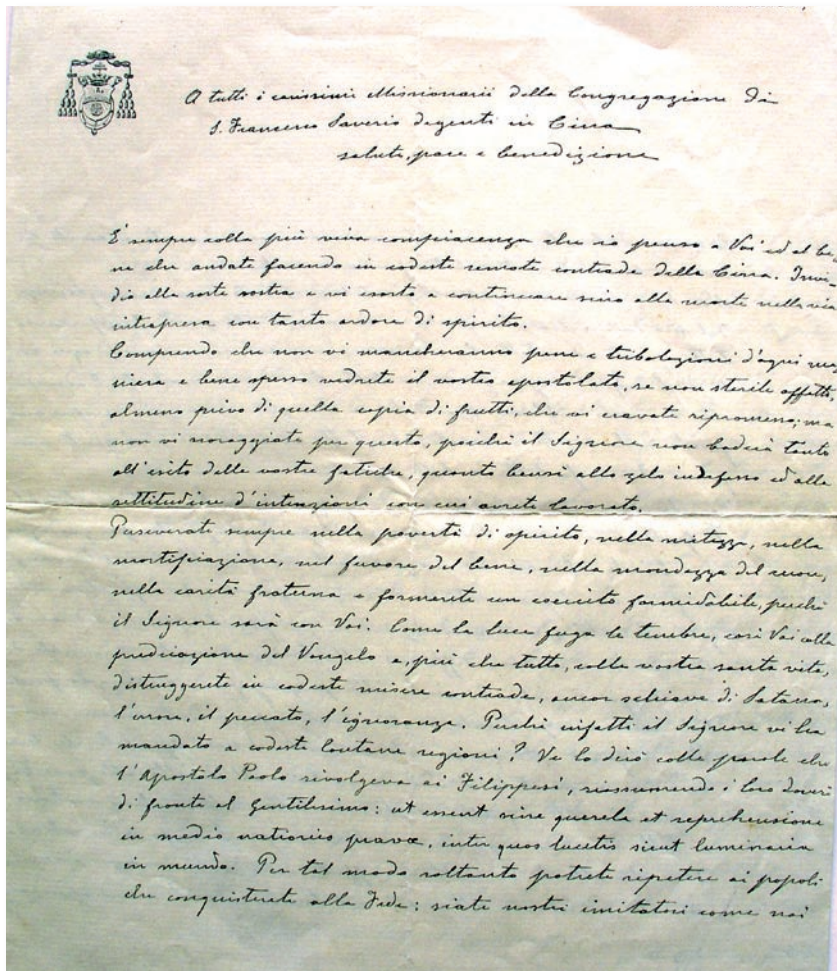 A tutti i carissimi Missionarii della Congregazione di
S. Francesco Saverio degenti in Cina
salute, pace e benedizione
È sempre colla più viva compiacenza che io penso a Voi ed al be-
ne che andate facendo in codeste remote contrade della Cina. Invi-
dio alla sorte vostra e vi esorto a continuare sino alla morte nella via
intrapresa con tanto ardore di spirito.
Comprendo che non vi mancheranno pene e tribolazioni d'ogni ma
niera e bene spesso vedrete il vostro apostolato, se non sterile affatto,
almeno privo di quella copia di frutti, che vi eravate ripromessi; ma
non vi scoraggiate per questo, poichè il Signore non baderà tanto
all'esito delle vostre fatiche, quanto bensì allo zelo indefesso ed alla
rettitudine d'intenzioni con cui avrete lavorato.
Perseverate sempre nella povertà di spirito, nella mitezza, nella
mortificazione, nel favore del bene, nella mondezza del cuore,
nella carità fraterna e formerete un esercito formidabile, perchè
il Signore sarà con Voi. Come la luce fuga le tenebre, così Voi colla
predicazione del Vangelo e, più che tutto, colla vostra santa vita,
distruggerete in codeste misere contrade, ancor schiave di Satana,
l'errore, il peccato, l'ignoranza. Perchè infatti il Signore vi ha
mandato a codeste lontane regioni? Ve lo dirò colle parole che
l'Apostolo Paolo rivolgeva ai Filippesi, riassumendo i loro doveri
di fronte al gentilesimo: ut essent sine querela et reprehensione
in medio nationis pravæ, inter quos lucetis sicut luminaria
in mundo. Per tal modo soltanto potrete ripetere ai popoli
che conquisterete alla Fede: siate nostri imitatori come noi